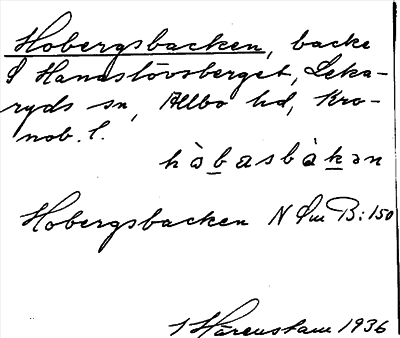 Hobergsbacken, backe
Hanastövsberget, Leka-
ryds sn, Allbo hd, Kro-
nob. l.
hòbasbàkən
Hobergsbacken N Sm B:150
Härenstam 1936